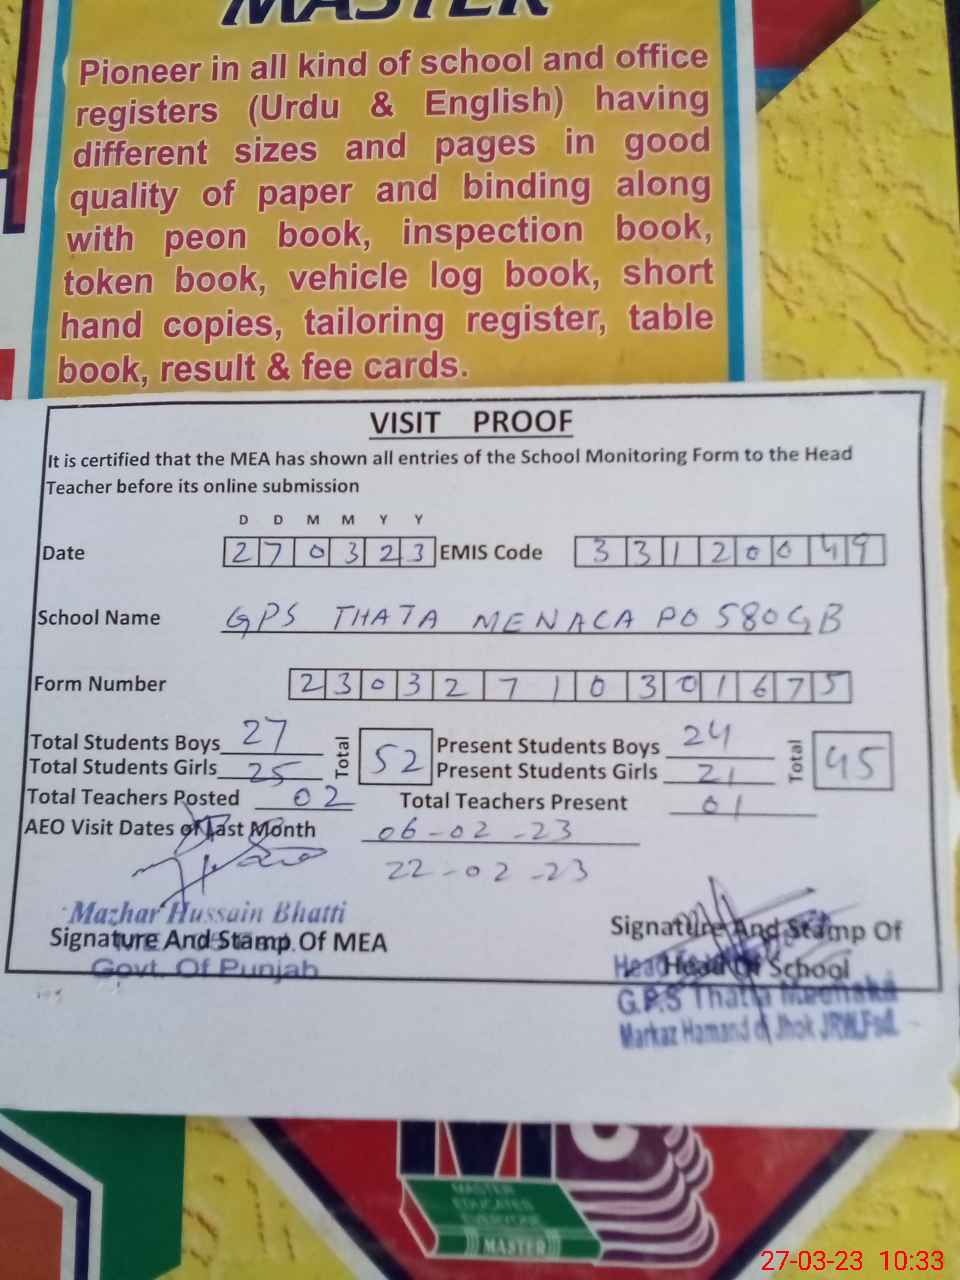 MASTER
Pioneer in all kind of school and office
registers (Urdu & English) having
different sizes and pages in good
quality of paper and binding along
with peon book, inspection book,
token book, vehicle log book, short
hand copies, tailoring register, table
book, result & fee cards.
VISIT PROOF
It is certified that the MEA has shown all entries of the School Monitoring Form to the Head
Teacher before its online submission
D D M M Y Y
Date 270323 EMIS Code 33120049
School Name GPS THATA MENACA PO 580GB
Form Number 23032710301675
Total Students Boys 27 Total 52 Present Students Boys 24 Total 45
Total Students Girls 25 Present Students Girls 21
Total Teachers Posted 02 Total Teachers Present 01
AEO Visit Dates of Last Month 06-02-23
22-02-23
Mazhar Hussain Bhatti
Signature And Stamp Of MEA
Govt. Of Punjab
Signature And Stamp Of
Head Of School
G.P.S Thatta Meenaka
Markaz Hamand Jhok JRW.Fsd.
MASTER
EDUCATES
EVERYONE
MASTER
27-03-23 10:33